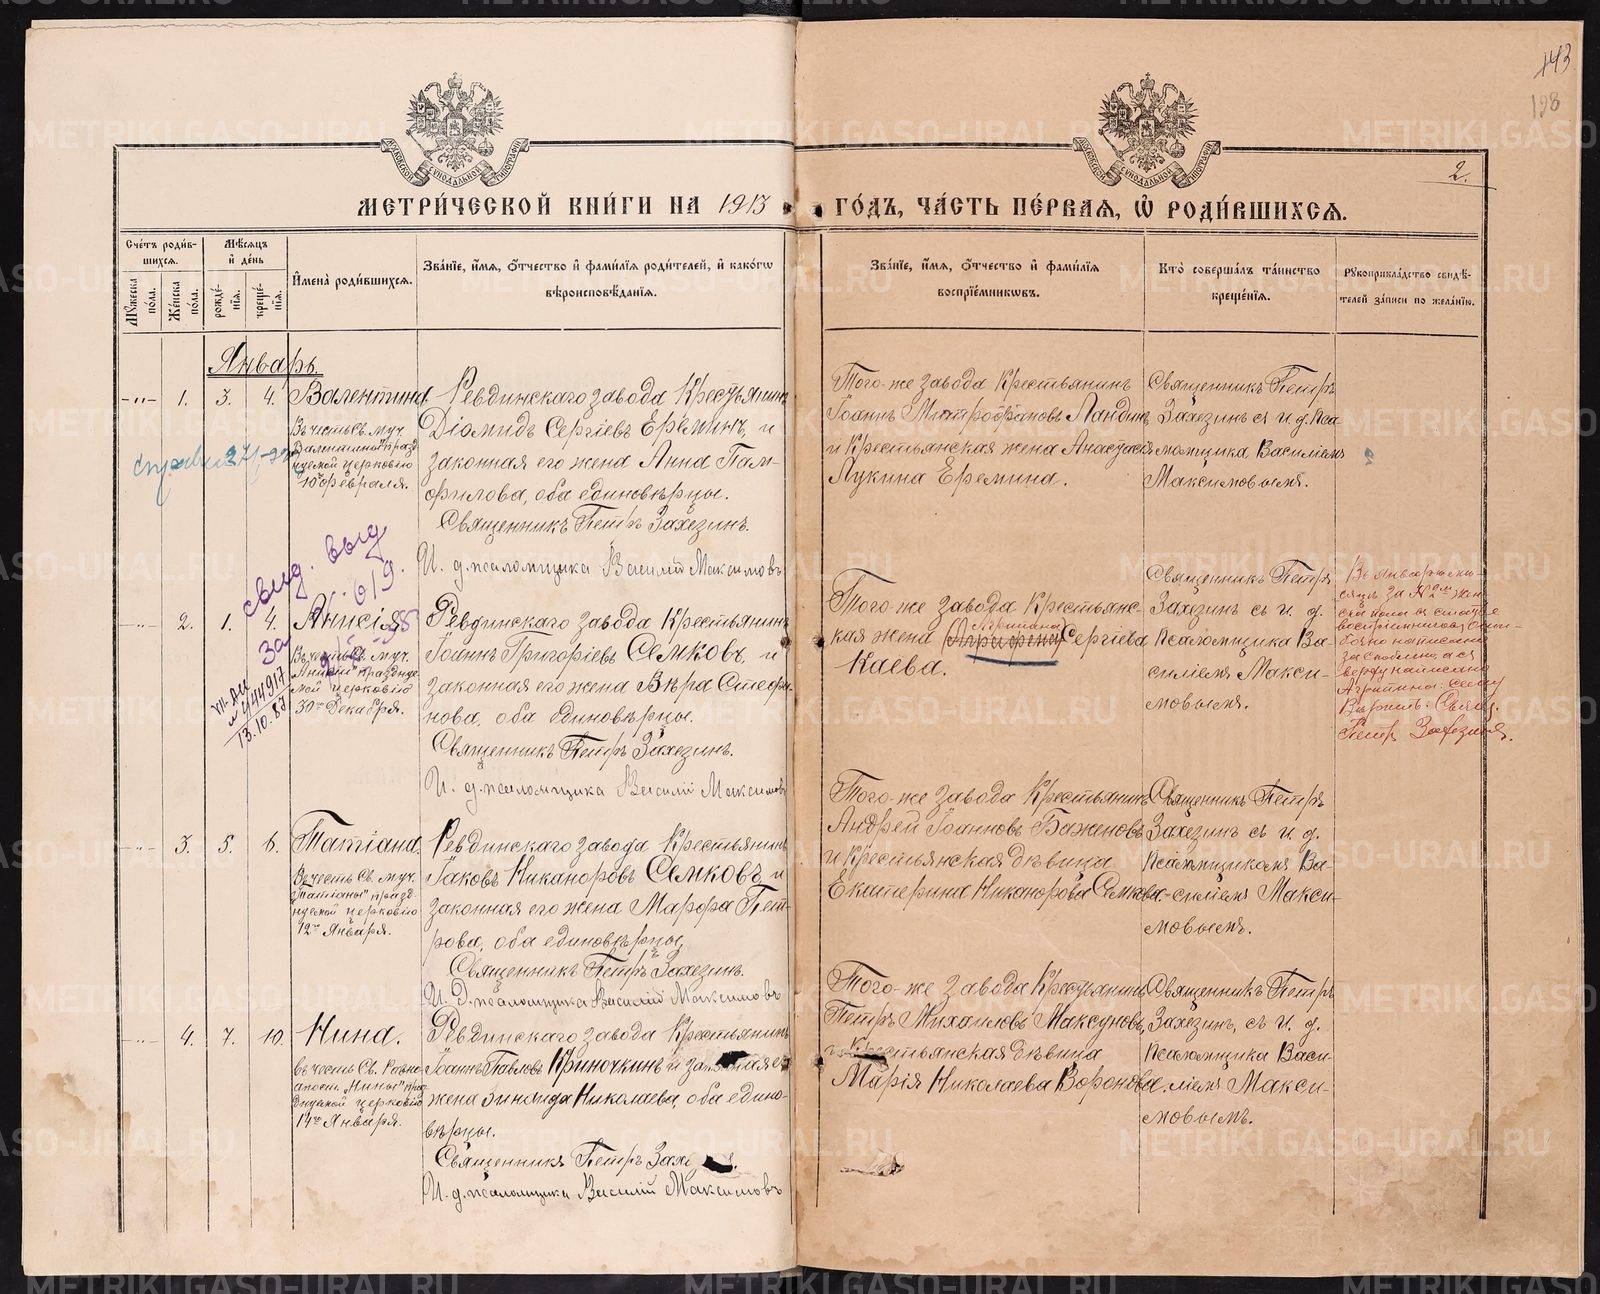 143
198
2.
МЕТРИ́ЧЕСКОЙ КНИ́ГИ НА 1913
ГО́ДЪ, ЧА́СТЬ ПЕ́РВАѦ, Ѡ҆ РОДИ́ВШИХСѦ.
Сче́тъ роди́в-
шихсѧ.
Мꙋ́жеска по́ла.
Же́нска по́ла.
Мѣ́сѧцъ и҆ де́нь
рожде́-
нїѧ.
креще́-
нїѧ.
И҆мена̀ роди́вшихсѧ.
Зва́нїе, и҆́мѧ, ѻ҆́тчество и҆ фами́лїѧ роди́телей, и҆ како́гѡ
вѣроисповѣ́данїѧ.
Зва́нїе, и҆́мѧ, ѻ҆́тчество и҆ фами́лїѧ
воспрїе́мникѡвъ.
Кто̀ соверша́лъ та́инство
креще́нїѧ.
Рꙋкоприкла́дство свидѣ́-
телей за́писи по жела́нїю.
Январь.
-"- 1. 3. 4. Валентина
Въ честь Св. муч.
Валентины празд-
нуемой церковію
10го февраля.
Ревдинскаго завода Крестьянинъ
Діомидъ Сергіевъ Ереминъ, и
законная его жена Анна Пам-
филова, оба единовѣрцы.
Священникъ Петръ Захезинъ.
И. д. псаломщика Василій Максимовъ
Того-же завода Крестьянинъ
Іоаннъ Митрофановъ Ландинъ
и Крестьянская жена Анастасія
Лукина Еремина.
Священникъ Петръ
Захезинъ съ и. д. пса-
ломщика Василіемъ
Максимовымъ.
свид. выд
619.
-"- 2. 1. 4. Анисія
Въ честь Св. муч.
Анисіи празднуе-
мой церковію
30го Декабря.
за
№ 444917
13.10.87
Ревдинскаго завода Крестьянинъ
Іоаннъ Григоріевъ Семковъ, и
законная его жена Вѣра Стефа-
нова, оба единовѣрцы.
Священникъ Петръ Захезинъ.
И. д. псаломщика Василій Максимовъ
Того-же завода Крестьянс-
Агрипина
кая жена (Агрифена) Сергіева
Каева.
Священникъ Петръ
Захезинъ съ и. д.
псаломщика Ва-
силіемъ Макси-
мовымъ.
Въ январѣ мѣ-
сяцѣ за № 2мъ жен-
ска пола въ статье
воспріемниковъ оши-
бочно написанное
зачеркнуто, а св-
верху написано
Агрипина: сему
Вѣрить: Свящ.
Петръ Захезинъ.
-"- 3. 5. 6. Татіана.
Въ честь Св. муч.
"Татіаны" празд-
нуемой церковію
12го Января.
Ревдинскаго завода Крестьянинъ
Іаковъ Никаноровъ Семковъ, и
законная его жена Марфа Пет-
рова, оба единовѣрцы,
Священникъ Петръ Захезинъ.
И. д. псаломщика Василій Максимовъ
Того-же завода Крестьянинъ
Андрей Іоанновъ Баженовъ
и Крестьянская дѣвица
Екатерина Никанорова Семкова.
Священникъ Петръ
Захезинъ съ и. д.
псаломщикомъ Ва-
силіемъ Макси-
мовымъ.
-"- 4. 7. 10. Нина.
въ честь Св. Равно-
апост. "Нины" праз-
днуемой церковію
14го Января.
Ревдинскаго завода Крестьянинъ
Іоаннъ Павловъ Криночкинъ и законная его
жена Зинаида Николаева, оба едино-
вѣрцы.
Священникъ Петръ Захе
И. д. псаломщика Василій Максимовъ
Того-же завода Крестьянинъ
Петръ Михаиловъ Максуновъ,
и Крестьянская дѣвица
Марія Николаева Воронова.
Священникъ Петръ
Захезинъ, съ и. д.
псаломщика Васи-
ліемъ Макси-
мовымъ.
METRIKI.GASO-URAL.RU